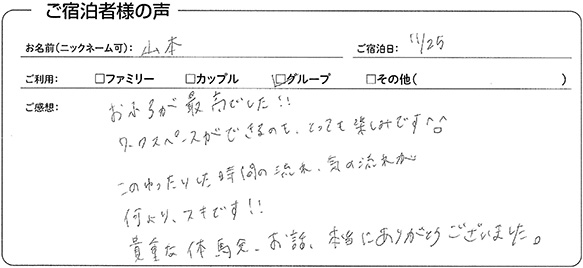 ご宿泊者様の声
お名前(ニックネーム可): 山本 ご宿泊日: 11/25
ご利用: □ファミリー □カップル ☑グループ □その他( )
ご感想: おふろが最高でした!!
ワークスペースができるのも、とっても楽しみです^^
このゆったりした時間の流れ、気の流れが
何より、スキです!!
貴重な体験、お話、本当にありがとうございました。